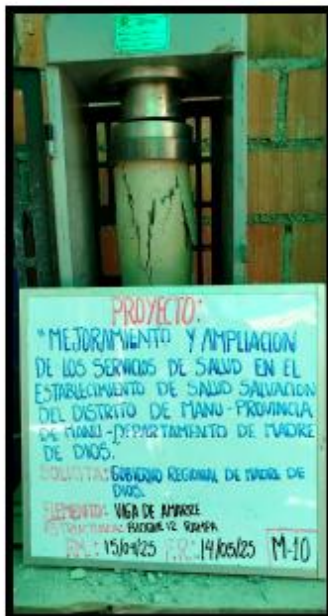 PROYECTO:
"MEJORAMIENTO Y AMPLIACION
DE LOS SERVICIOS DE SALUD EN EL
ESTABLECIMIENTO DE SALUD SALVACION
DEL DISTRITO DE MANU-PROVINCIA
DE MANU-DEPARTAMENTO DE MADRE
DE DIOS.
SOLICITA: GOBIERNO REGIONAL DE MADRE DE
DIOS.
ELEMENTO: VIGA DE AMARRE
ESTRUCTURA: BLOQUE 12 RAMPA
F.M.: 15/04/25 F.R.: 14/05/25 M-10